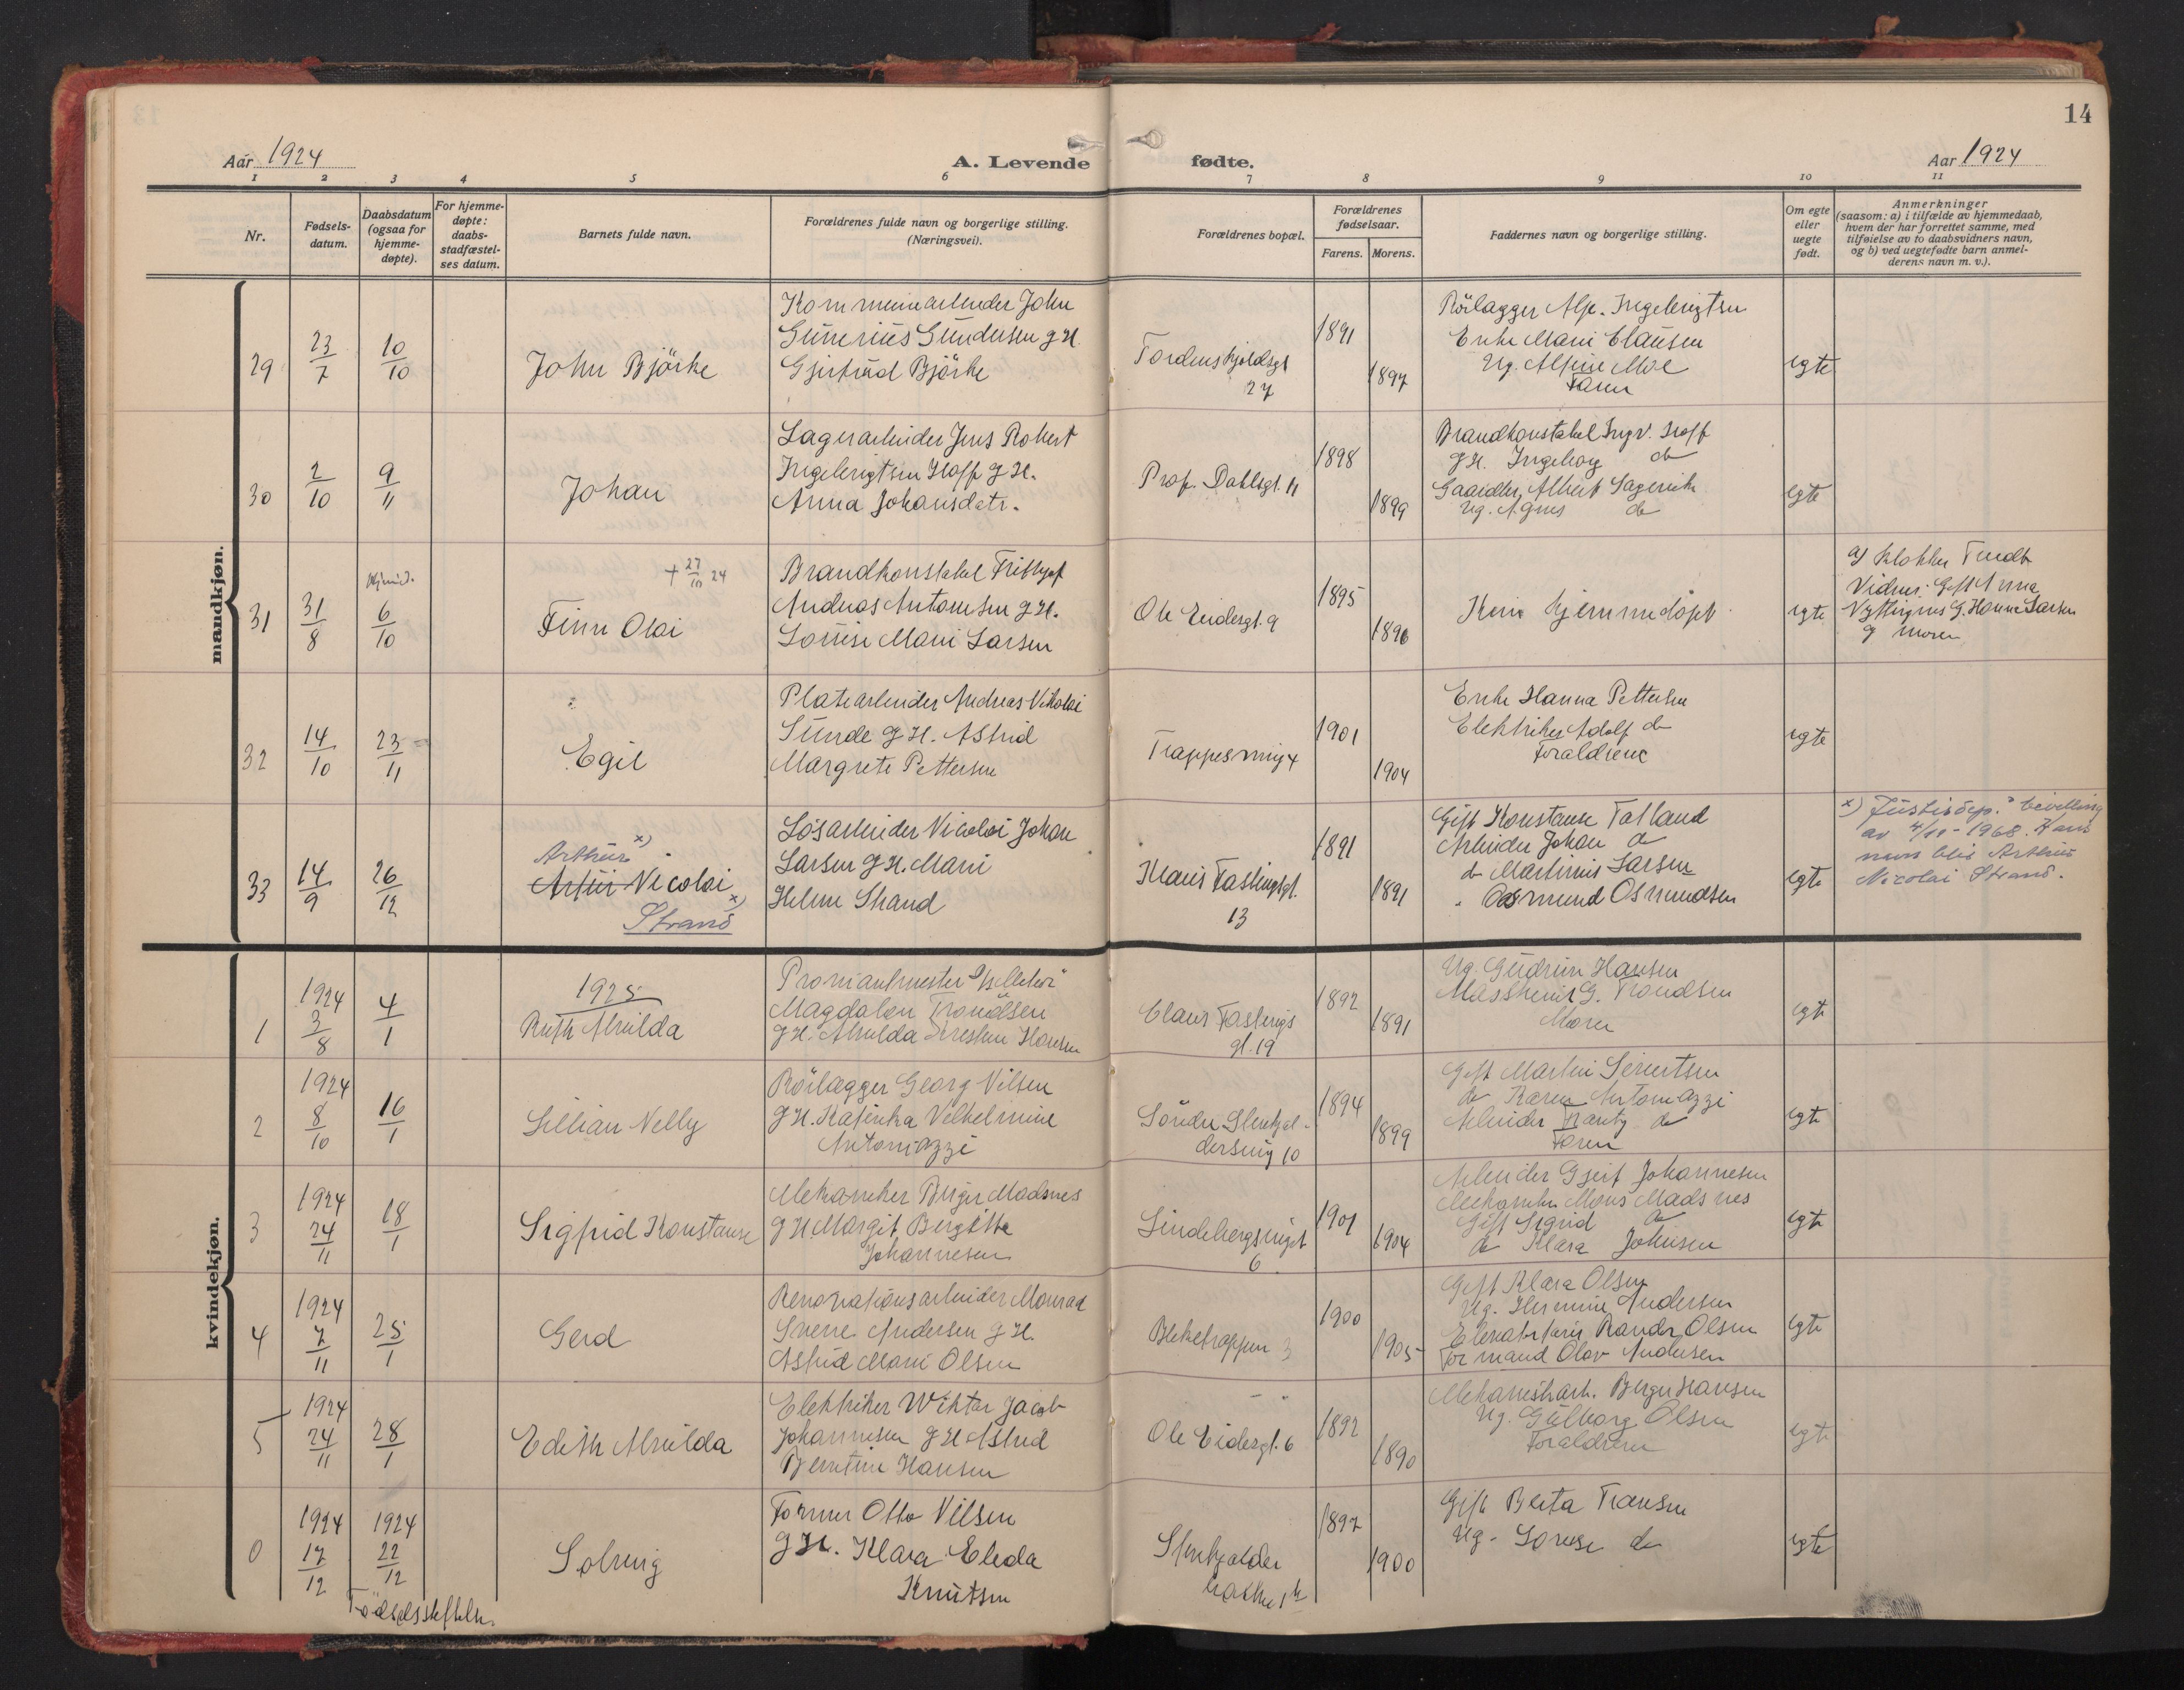 14
Aar 1924
A. Levende fødte.
Aar 1924
1 2 3 4 5 6 7 8 9 10 11
Nr.
Fødsels-
datum.
Daabsdatum
(ogsaa for
hjemme-
døpte).
For hjemme-
døpte:
daabs-
stadfæstel-
ses datum.
Barnets fulde navn.
Forældrenes fulde navn og borgerlige stilling.
(Næringsvei).
Forældrenes bopæl.
Forældrenes
fødselsaar.
Farens. Morens.
Faddernes navn og borgerlige stilling.
Om egte
eller
uegte
født.
Anmerkninger
(saasom: a) i tilfælde av hjemmedaab,
hvem der har forrettet samme, med
tilføielse av to daabsvidners navn,
og b) ved uegtefødte barn anmel-
derens navn m. v.).
mandkjøn.
29
23/7
10/10
John Björke
John
Gunerius Gundersen g H.
Gjertrud Björke
Tordenskjoldsgt
27
1891
1897
Rörlægger Alf. Ingebrigtsen
Enke Marie Clausen
Ug. Alfine Moe
Faren
egte
30
2/10
9/11
Johan
Lagerarbeider Jens Robert
Ingebrigtsen Hoff g H.
Anna Johansdatr.
Prof. Dahlsgt. 11
1898
1899
Brandkonstabel Ingv. Hoff
g H. Ingeborg do
Albert
Ug. Agnes do
egte
31
31/8
Hjemmed.
6/10
+ 27/10 24
Finn Olai
Brandkonstabel Frithjof
Andreas Antonsen g H.
Louise Marie Larsen
Ole Eidesgt. 9
1895
1896
hjemmedöpt
egte
a) Klokker
Vidner: Gift Anna
G. Hanna Larsen
og moren
32
14/10
23/11
Egil
Platearbeider Andreas Nikolai
Sunde g H. Astrid
Margrete Pettersen
Trappesmug 4
1901
1904
Enke Hanna Pettersen
Elektriker Adolf do
Foraldrene
egte
33
14/9
26/12
Arthur x)
Artur Nicolai x)
Strand
Lösarbeider Nicolai Johan
Larsen g H. Marie
Helene Strand
Klaus Fastingsgt.
13
1891
1891
Gift Konstanse Tolland
Arbeider Johan do
do Martinus Larsen
" Aasmund Osmundsen
egte
x) Justisdep.s bevilling
av 4/11-1968. Hans
navn blir Arthur
Nicolai Strand.
kvindekjøn.
1
1924
3/8
4/1
1925
Ruth Alvilda
Proviantmester
Magdalon Trondsen
g H. Alvilda Hansen
Claus Fastings
gt. 19
1892
1891
Ug. Gudrun Hansen
G. Trondsen
Moren
egte
2
1924
8/10
16/1
Lillian Nelly
Rörlægger Georg Nilsen
g H. Katinka Vilhelmine
Antoniazzi
Söndre Stenkjel-
dersmug 10
1894
1899
Gift Sivertsen
do Karen Antoniazzi
Arbeider Frantz do
Faren
egte
3
1924
24/11
18/1
Sigfrid Konstanse
Mekaniker Birger Madsnes
g H Margit Bergitte
Johannesen
Lindebergsmuget
6
1901
1904
Arbeider Johannesen
Mekaniker Mons Madsnes
Gift Sigrid do
do Klara Johnsen
egte
4
1924
7/11
25/1
Gerd
Renovationsarbeider Monrad
Sverre Andersen g H.
Astrid Marie Olsen
Bleketrappen 3
1900
1905
Gift Klara Olsen
Ug. Hermine Andersen
Olsen
Formand Olav Andersen
egte
5
1924
24/11
28/1
Edith Alvilda
Elektriker Wiktor Jacob
Johannesen g H Astrid
Berntine Hansen
Ole Eidesgt. 6
1892
1890
Birger Hansen
Ug. Gulborg Olsen
Foraldrene
egte
0
1924
17/12
1924
22/12
Solveig
Former Otto Nilsen
g H. Klara Eleda
Knutsen
Stenkjelder
bakken 1b
1897
1900
Gift Berta Fransen
Ug. Lovise do
egte
Födselsstiftelsen